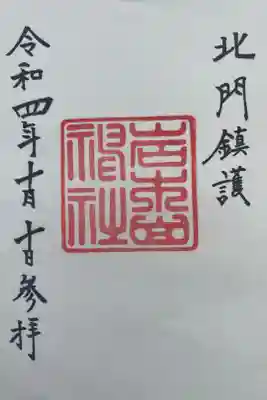 北門鎮護
岩木山
神社
令和四年十月十日参拝